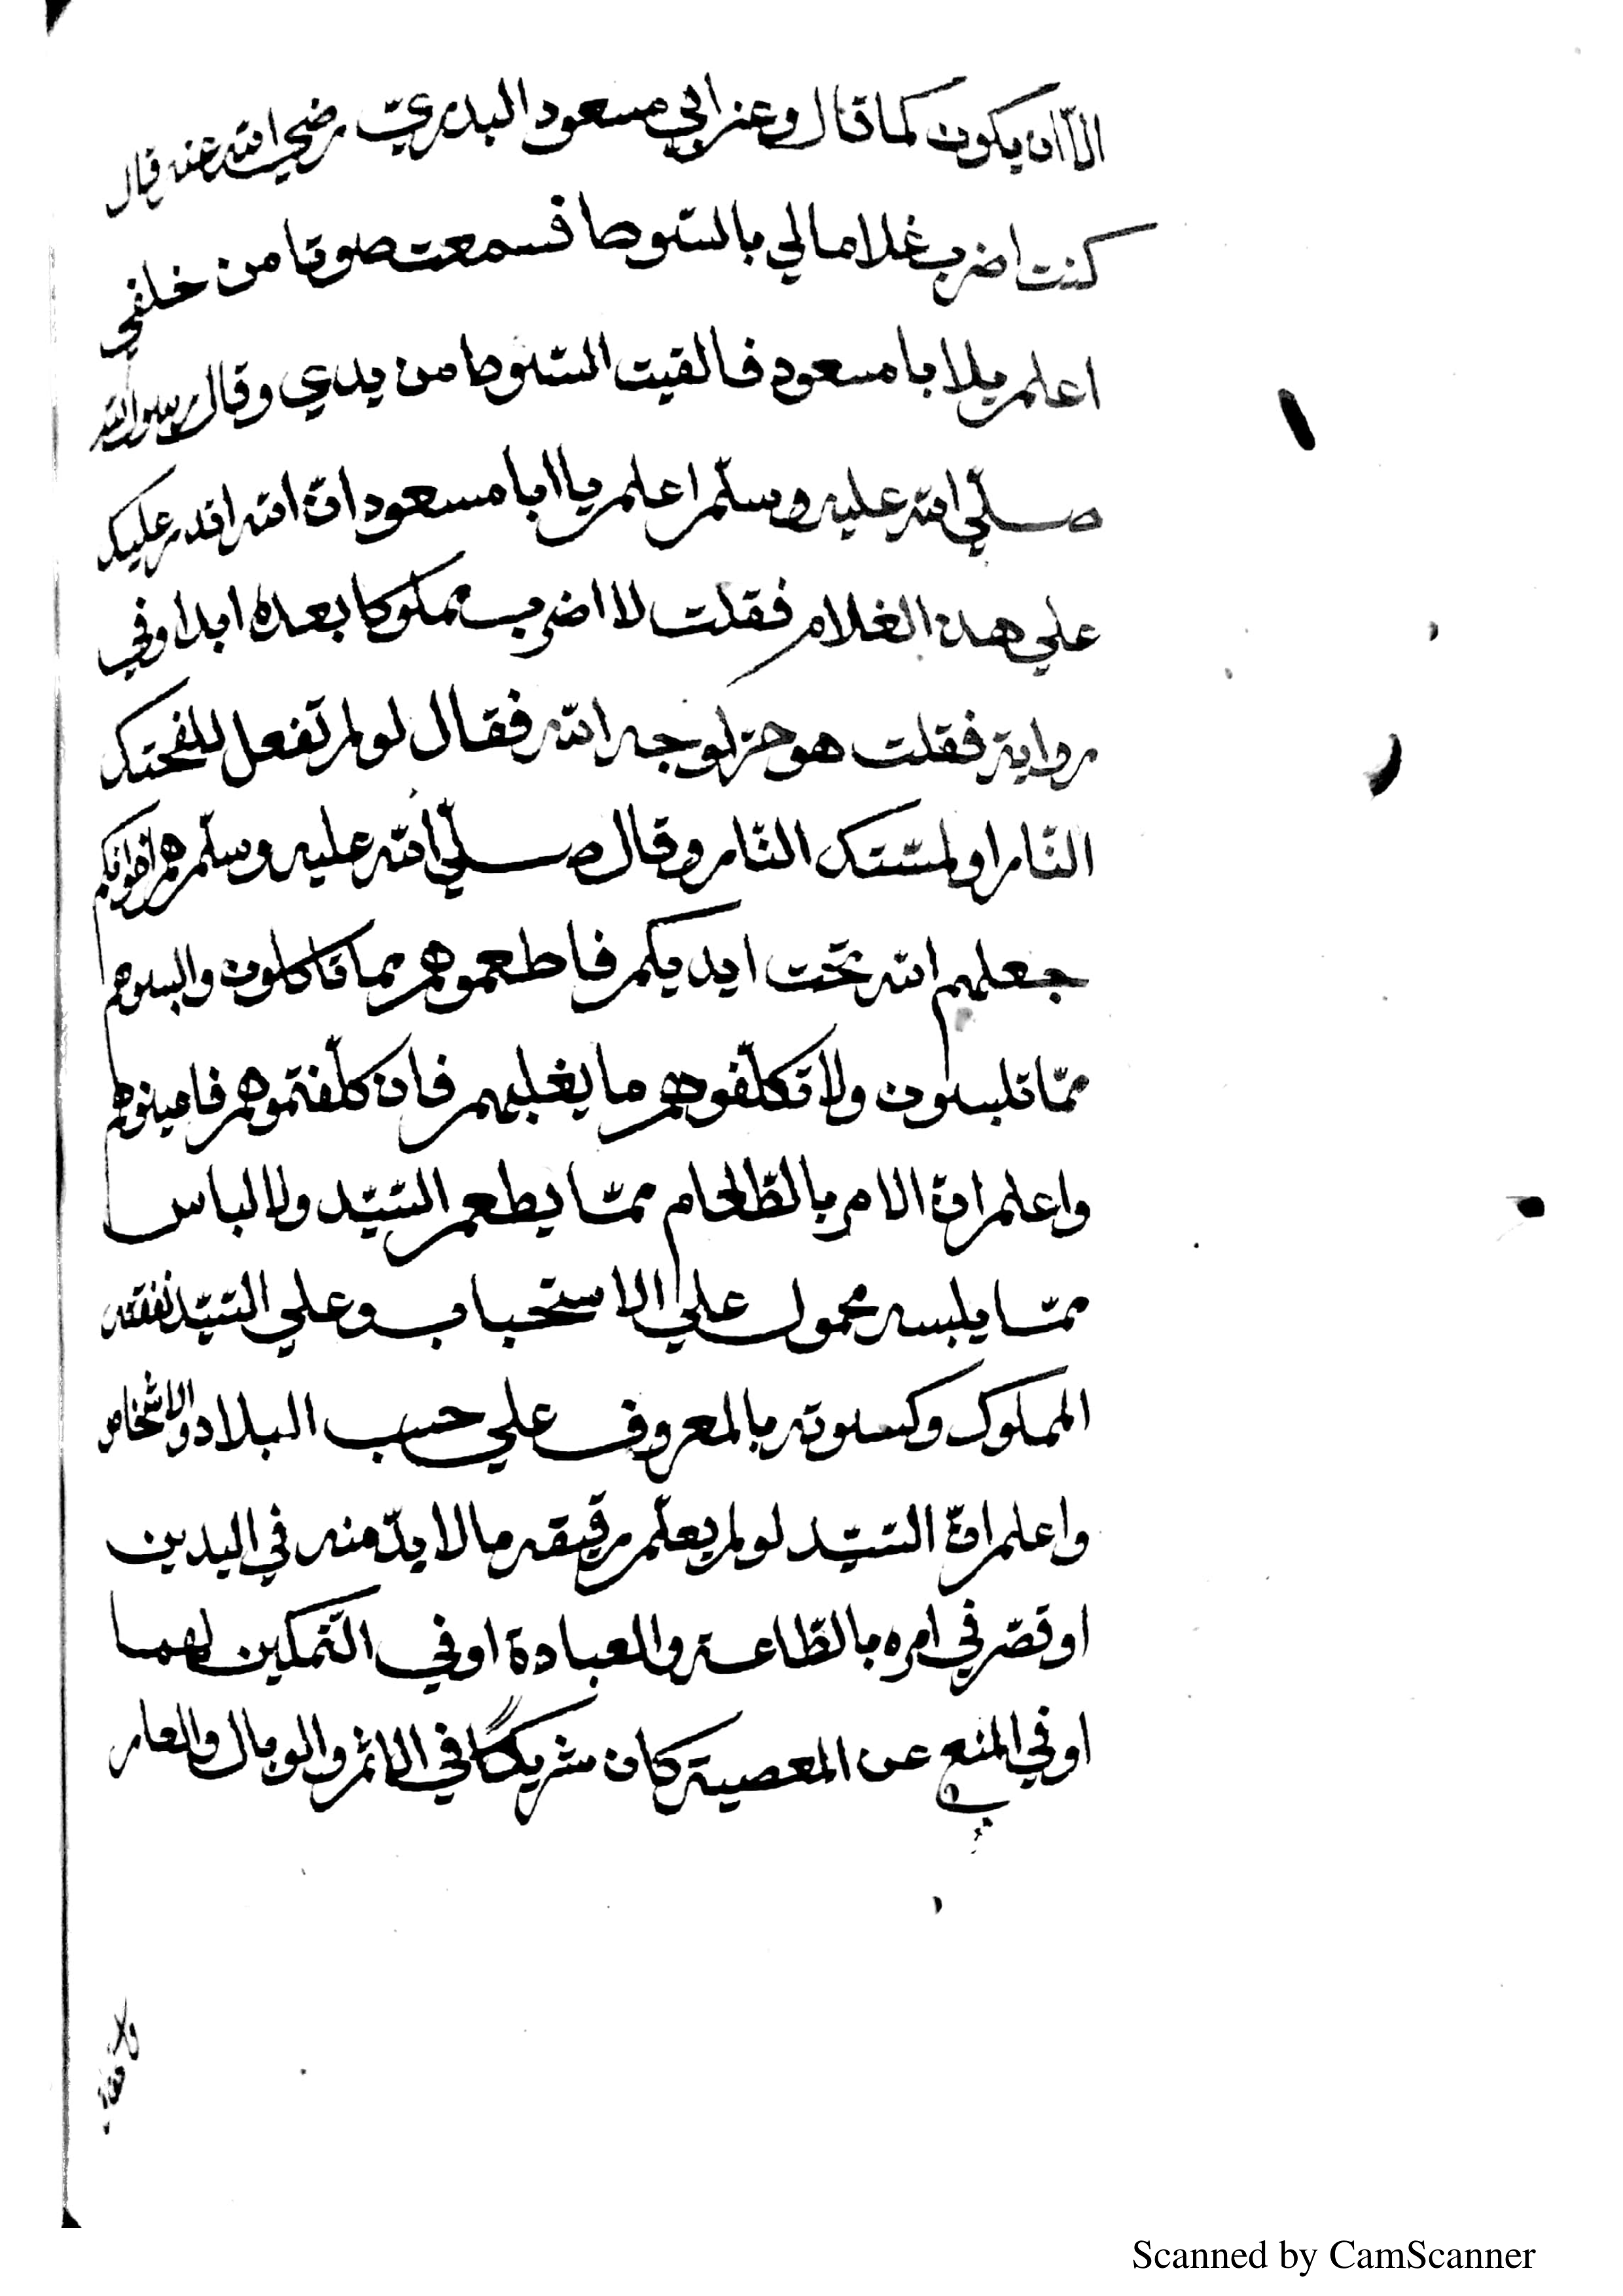 الّا ان يكون كما قال وعن ابي مسعود البدريّ رضي الله عنه قال
كنت اضرب غلاما لي بالسّوط فسمعت صوتا من خلفي
اعلم يا ابا مسعود فالقيت السّوط من يدي وقال رسول الله
صلّي الله عليه وسلّم اعلم يا ابا مسعود انّ الله اقدر عليك
علي هذا الغلام فقلت لا اضرب مملوكا بعده ابدا وفي
رواية فقلت هو حرّ لوجه الله فقال لو لم تفعل للفحتك
النّار او لمسّتك النّار وقال صلّي الله عليه وسلّم هم اخوانكم
جعلهم الله تحت ايديكم فاطعموهم مما تاكلون والبسوهم
ممّا تلبسون ولا تكلّفوهم ما يغلبهم فان كلّفتموهم فاعينوهم
واعلم انّ الامر بالطّعام ممّا يطعم السّيّد ولالباس
ممّا يلبسه محمول علي الاستحباب وعلي السّيّد نفقة
المملوك وكسوته بالمعروف علي حسب البلاد والاشخاص
واعلم انّ السّيّد لو لم يعلّم رقيقه ما لا بدّ منه في الدين
او قصّر في امره بالطّاعة والعبادة او في التّمكين لهما
او في المنع عن المعصية كان شريكًا في الاثم والوبال والعار
Scanned by CamScanner